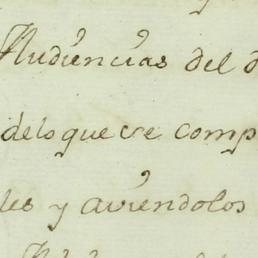 Audiencias del d
delo que se comp
les y aviendolos